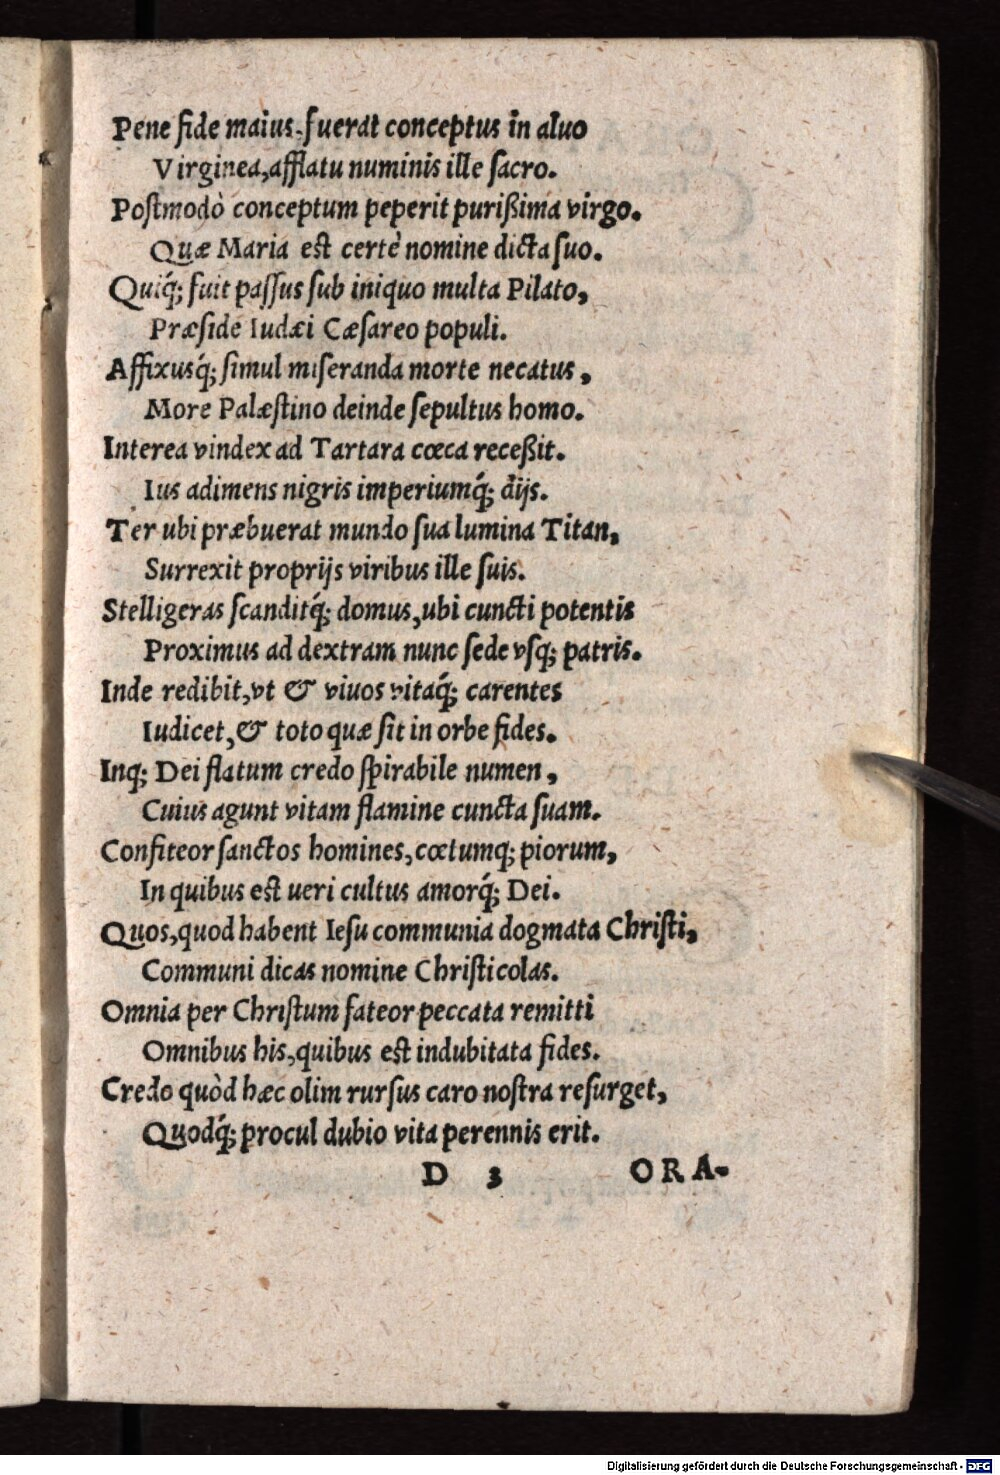 Pene fide maius, fuerat conceptus in aluo
Virginea, afflatu numinis ille sacro.
Postmodò conceptum peperit purißima virgo.
Quæ Maria est certè nomine dicta suo.
Quiq́; fuit passus sub iniquo multa Pilato,
Præside Iudæi Cæsareo populi.
Affixusq́; simul miseranda morte necatus,
More Palæstino deinde sepultus homo.
Interea vindex ad Tartara cœca receßit.
Ius adimens nigris imperiumq́; dijs.
Ter ubi præbuerat mundo sua lumina Titan,
Surrexit proprijs viribus ille suis.
Stelligeras scanditq́; domus, ubi cuncti potentis
Proximus ad dextram nunc sede vsq; patris.
Inde redibit, vt & viuos vitaq́; carentes
Iudicet, & toto quæ sit in orbe fides.
Inq; Dei flatum credo spirabile numen,
Cuius agunt vitam flamine cuncta suam.
Confiteor sanctos homines, cœtumq; piorum,
In quibus est ueri cultus amorq́; Dei.
Quos, quod habent Iesu communia dogmata Christi,
Communi dicas nomine Christicolas.
Omnia per Christum fateor peccata remitti
Omnibus his, quibus est indubitata fides.
Credo quòd hæc olim rursus caro nostra resurget,
Quodq́; procul dubio vita perennis erit.
D 3 ORA-
Digitalisierung gefördert durch die Deutsche Forschungsgemeinschaft - DFG